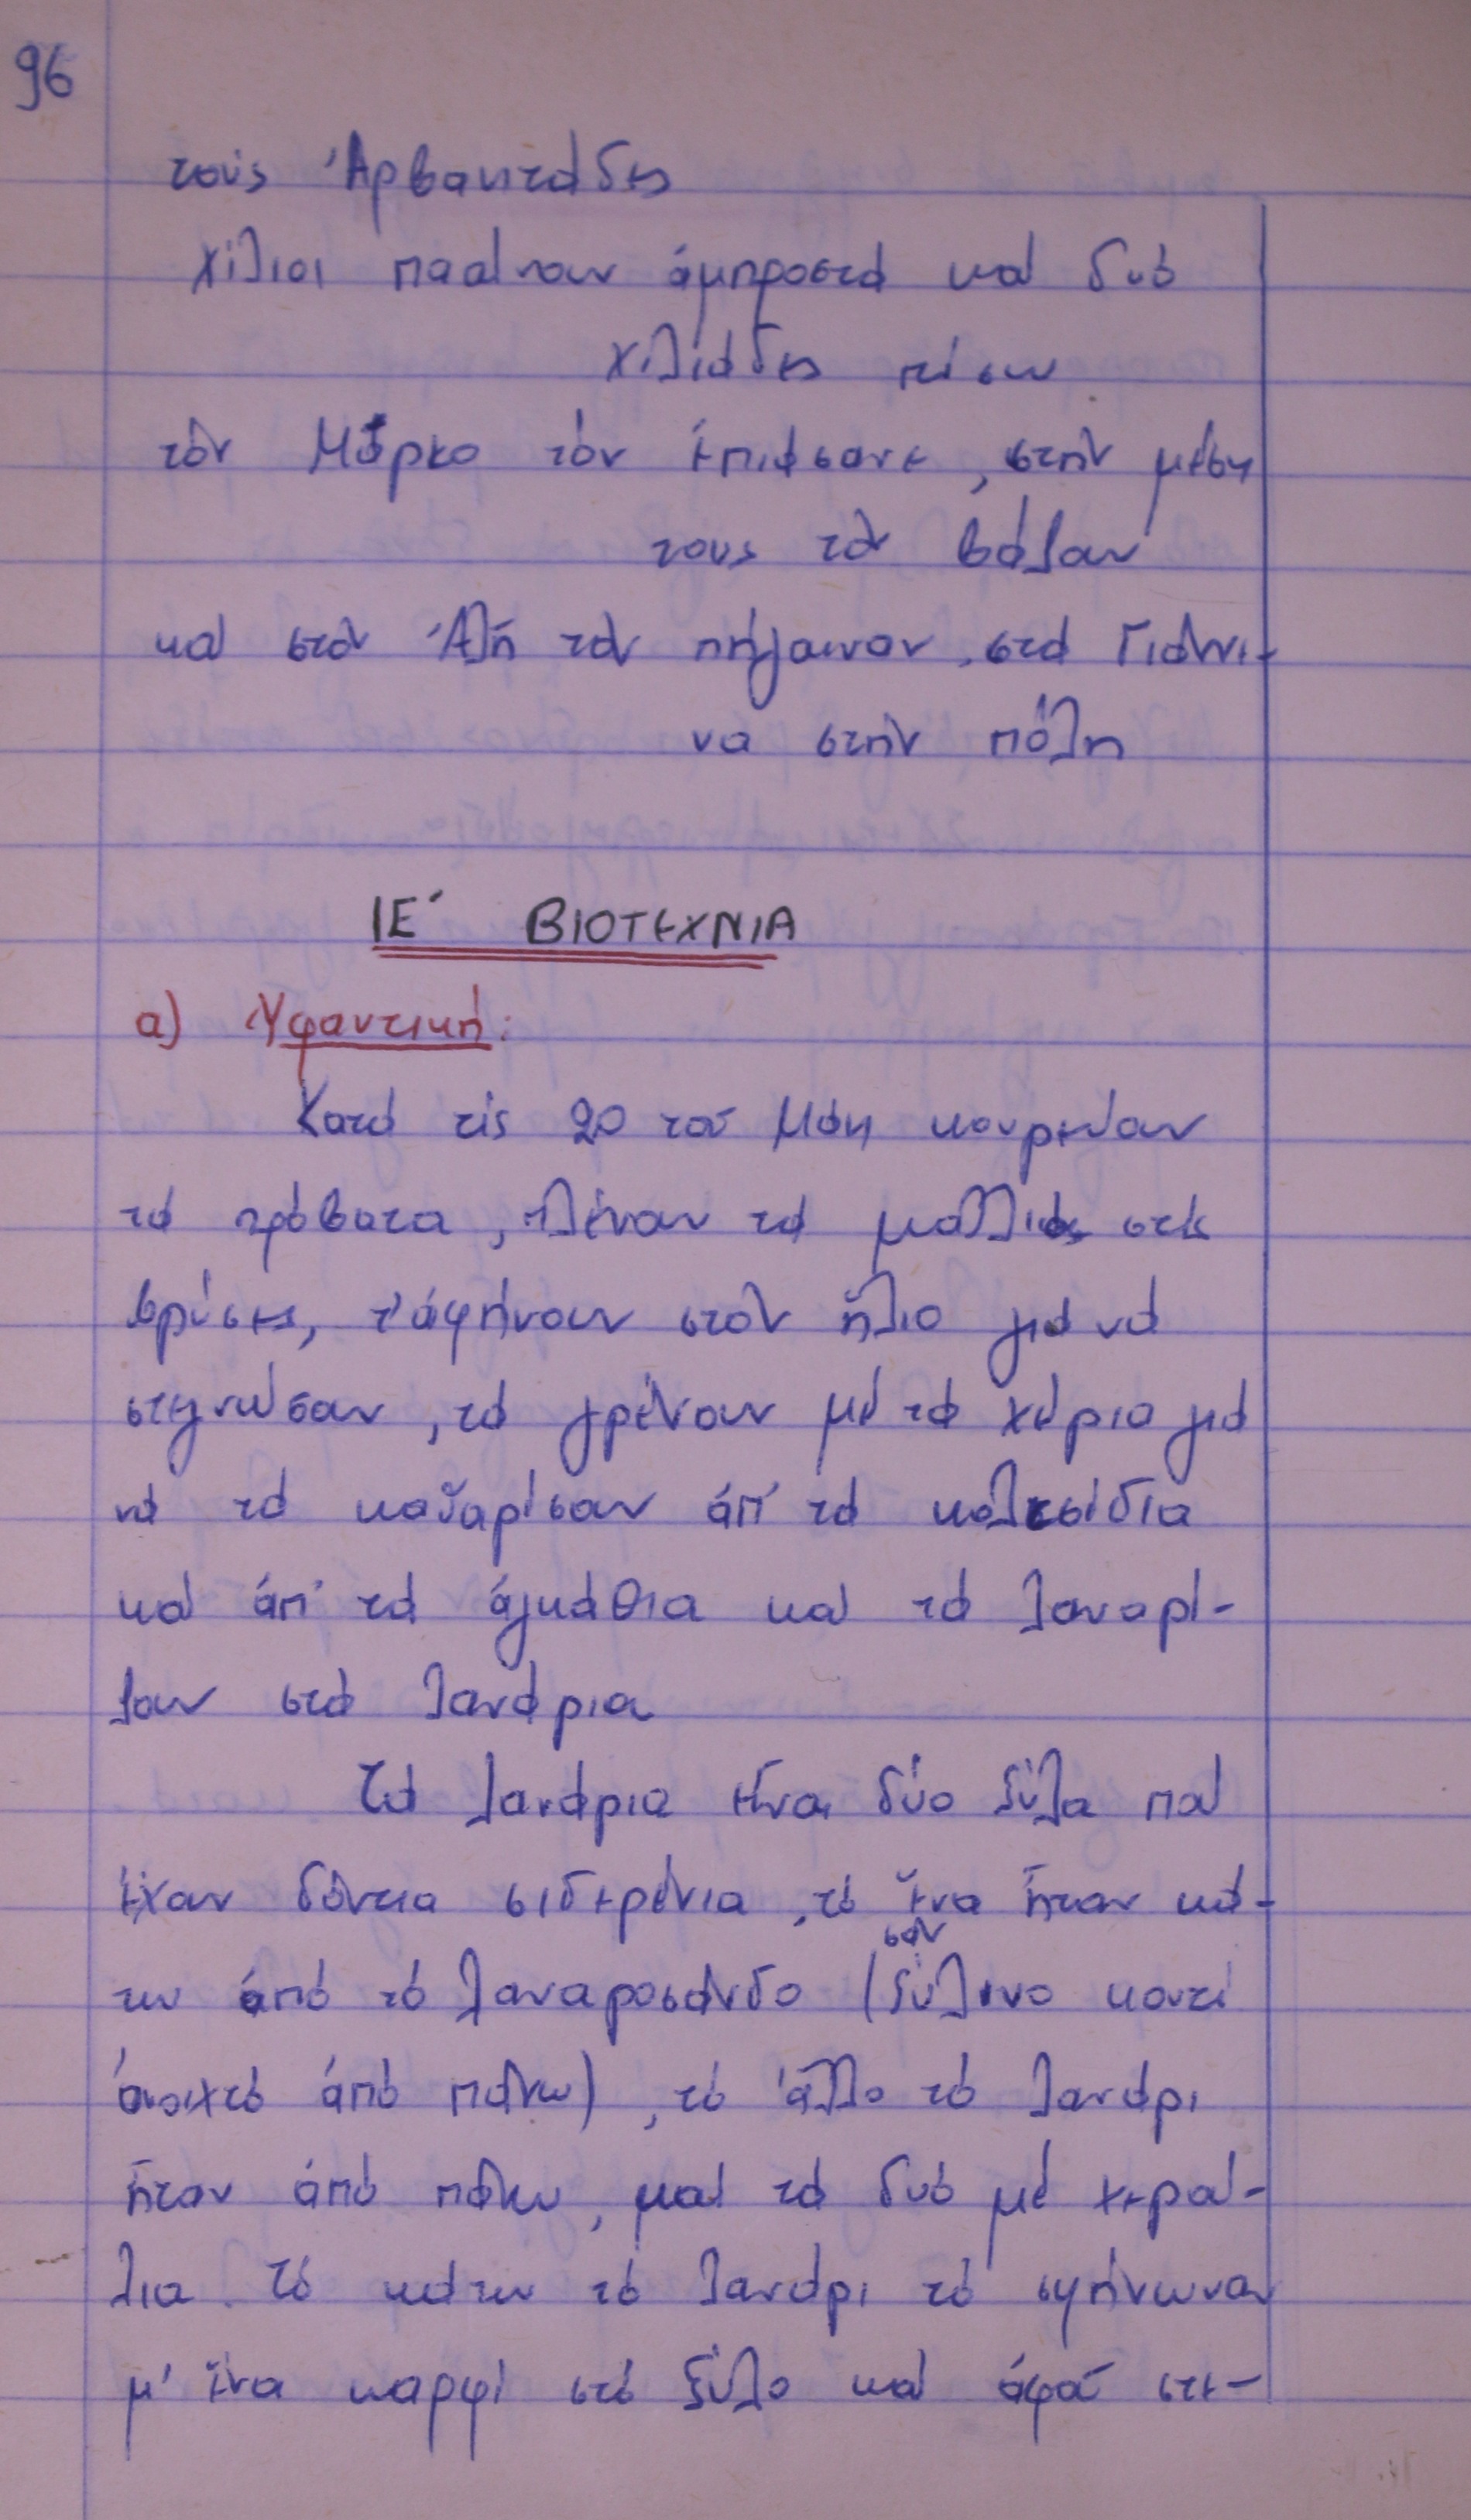 96
τούς Ἀρβανιτάδες
χίλιοι πααίνουν ἀμπροστά καί δυό
χιλιάδες πίσω
τόν Μάρκο τόν ἐπιάσανε, στήν μέση
τους τόν βάζουν
καί στόν Ἀλῆ τόν πήγαιναν, στά Γιάννι-
να στήν πόλη
ΙΕ΄ ΒΙΟΤΕΧΝΙΑ
α) Ὑφαντική:
Κατά τίς 20 τοῦ Μάη κουρεύουν
τά πρόβατα, πλέναν τά μαλλιά στίς
βρύσες, τ' ἀφήνουν στόν ἥλιο γιά νά
στεγνώσουν, τά γρένουν μέ τά χέρια γιά
νά τά καθαρίσουν ἀπ' τά κολτσίδια
καί ἀπ' τά ἀγκάθια καί τά λαναρί-
ζουν στά λανάρια
Τά λανάρια εἶναι δύο ξύλα πού
εἶχαν δόντια σιδερένια, τό ἕνα ἦταν κά-
τω ἀπό τό λαναροσάνδο (σάν ξύλινο κουτί
ἀνοιχτό ἀπό πάνω), τό ἄλλο τό λανάρι
ἦταν ἀπό πάνω, μαί τά δυό μέ χερού-
λια. Τό κάτω τό λανάρι τό σφήνωναν
μ' ἕνα καρφί στό ξύλο καί ἀφοῦ στε-